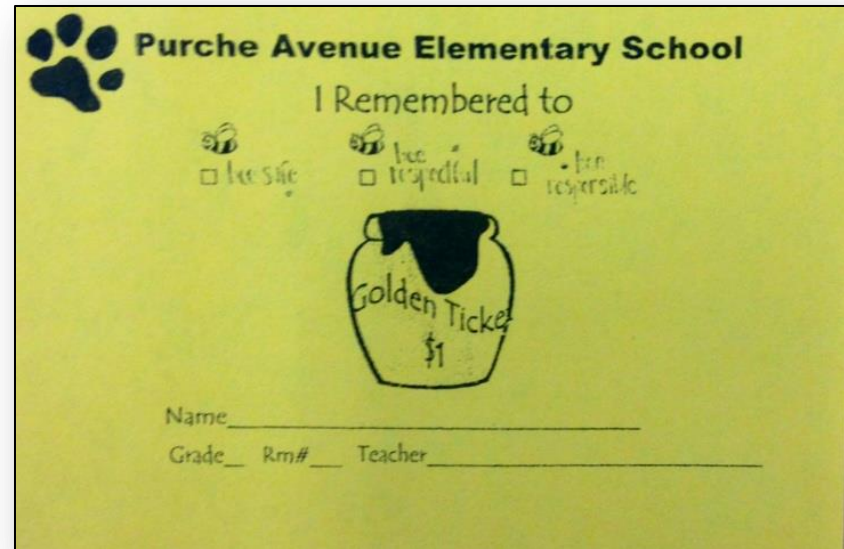 Purche Avenue Elementary School
I Remembered to
bee safe
bee respectful
bee responsible
Golden Ticket
$1
Name
Grade__ Rm#___ Teacher